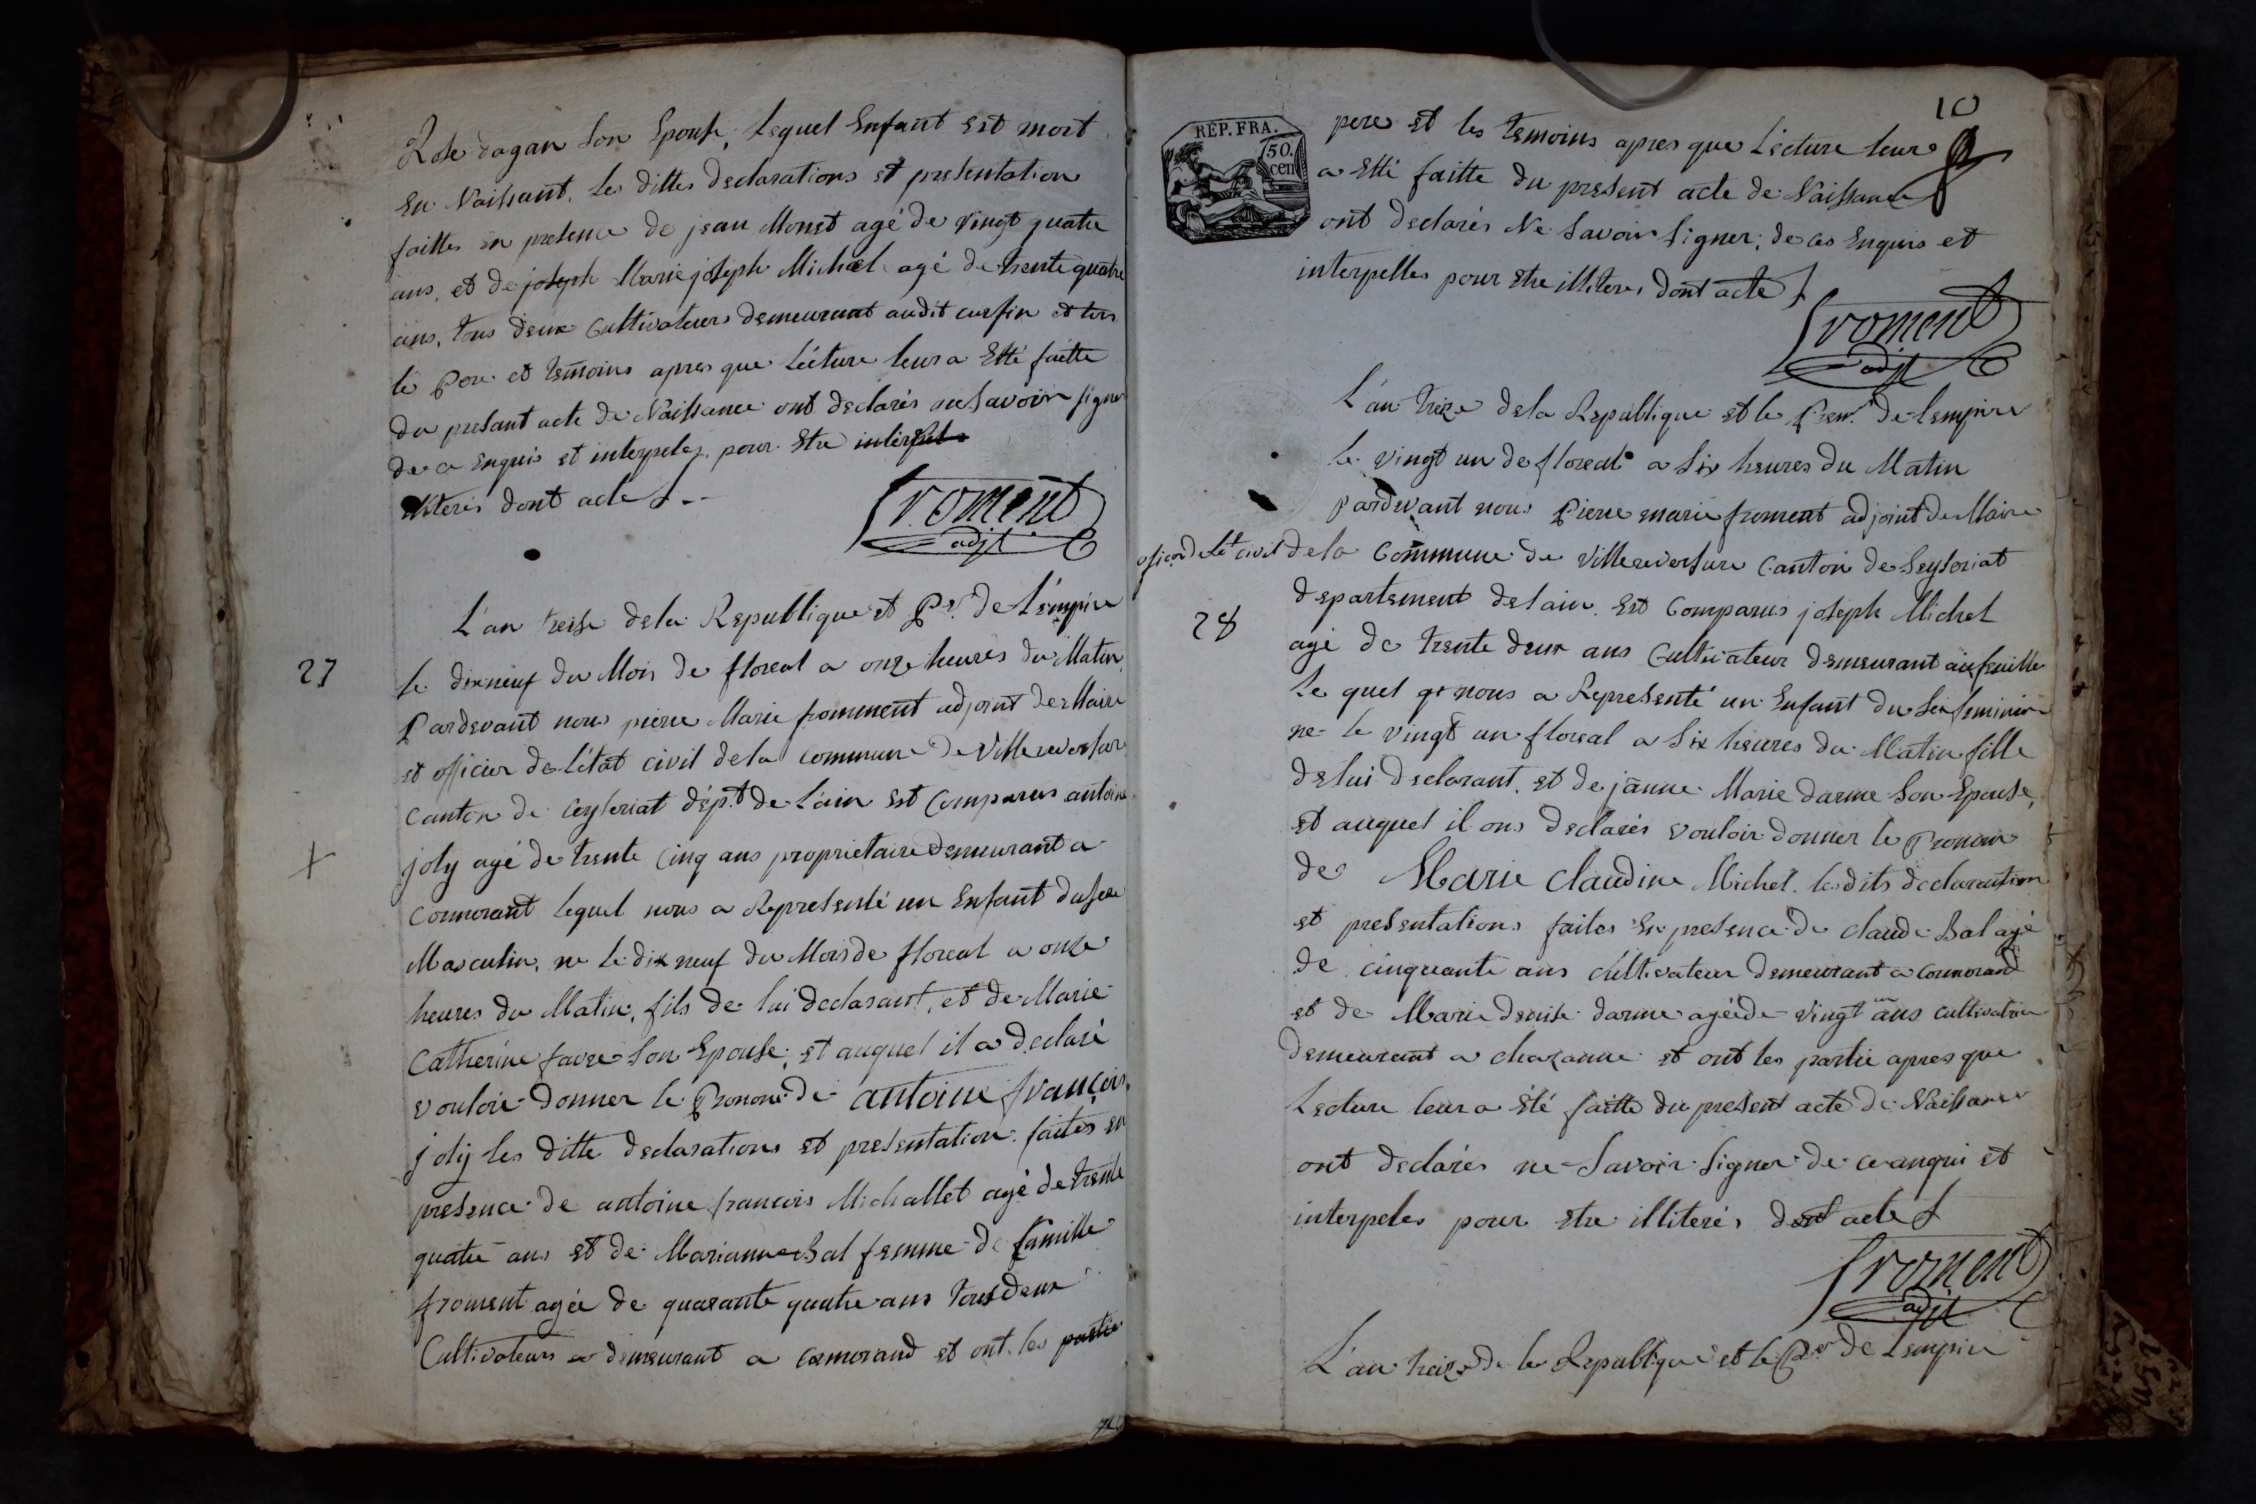 Rose dagan Son Epouse, Lequel Enfant est mort
En Naissant. les dittes declarations et presentation
faittes en presence de jean Monet agé de vingt quatre
ans, et de joseph Marie joseph Michel agé de trente quatre
ans, tous deux Cultivateurs demeurant audit curfin et tous
le Pere et temoins apres que Lecture leur a Etté faitte
du presant acte de Naissance ont declarés ne Savoir signer
de ce Enquis et interpeles pour Etre
illiteres dont acte
froment
adjt
27
L'an treise dela Republique et Per. de L'empire
le dixneuf du Mois de floreal a onze heures du Matin
Pardevant nous pierre Marie fromment adjoint de Maire
et officier de L'état civil dela commune de Villereversur
canton de ceyseriat dépt. de L'ain est Comparus antoine
joly agé de trente Cinq ans proprietaire demeurant a
Cormorant lequel nous a Represente un Enfant du sexe
Masculin, ne le dix neuf du Mois de floreal a onze
heures du Matin, fils de lui declarant, et de Marie
Catherine favre Son Epouse, et auquel il a declaré
vouloir donner le Prenom de antoine françois
joly les ditte declarations et presentation faites en
presence de antoine francois Michallet agé de trente
quatre ans et de Marianne Bal femme de famille
froment agée de quarante quatre ans tous deux
Cultivateurs demeurant a cormorand et ont les partie
10
REP. FRA.
50.
cen
pere et les temoins apres que Lecture leur
a Etté faitte du present acte de Naissance
ont declarés Ne Savoir Signer, de ces Enquis et
interpelles pour Etre illiteres dont acte
froment
adjt
L'an treize dela Republique et le Prem. de Lempire
le vingt un de floreal a Six heures du Matin
Pardevant nous Pierre marie froment adjoint de Maire
oficier de lét civil dela Commune de Villereversure Canton de Seyseriat
28
departement de lain. Est Comparus joseph Michel
agé de trente deux ans Cultivateur demeurant
Le quel nous a Representé un Enfant du Sexe feminin
ne le vingt un floreal a Six heures du Matin fille
de lui declarant. et de janne Marie darme Son Epouse,
et auquel il ons declarés vouloir donner le Prenom
de Marie Claudine Michel. les dits declaration
et presentations faites En presence de Claude Bal agé
de cinquante ans cultivateur demeurant a Cormorand
et de Marie denise darme agée de vingt un ans cultivatrice
demeurant a chazanne et ont les partie apres que
Lecture leur a Eté faitte du present acte de Naissance
ont declarés ne Savoir Signer de ce anqui et
interpeles pour etre illiterés dont acte
froment
adjt
L'an treize de la Republique et le Per de Lempire